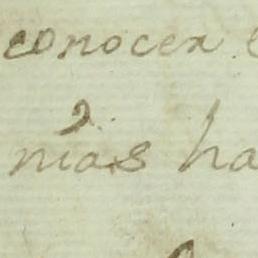 conocer
nias ha